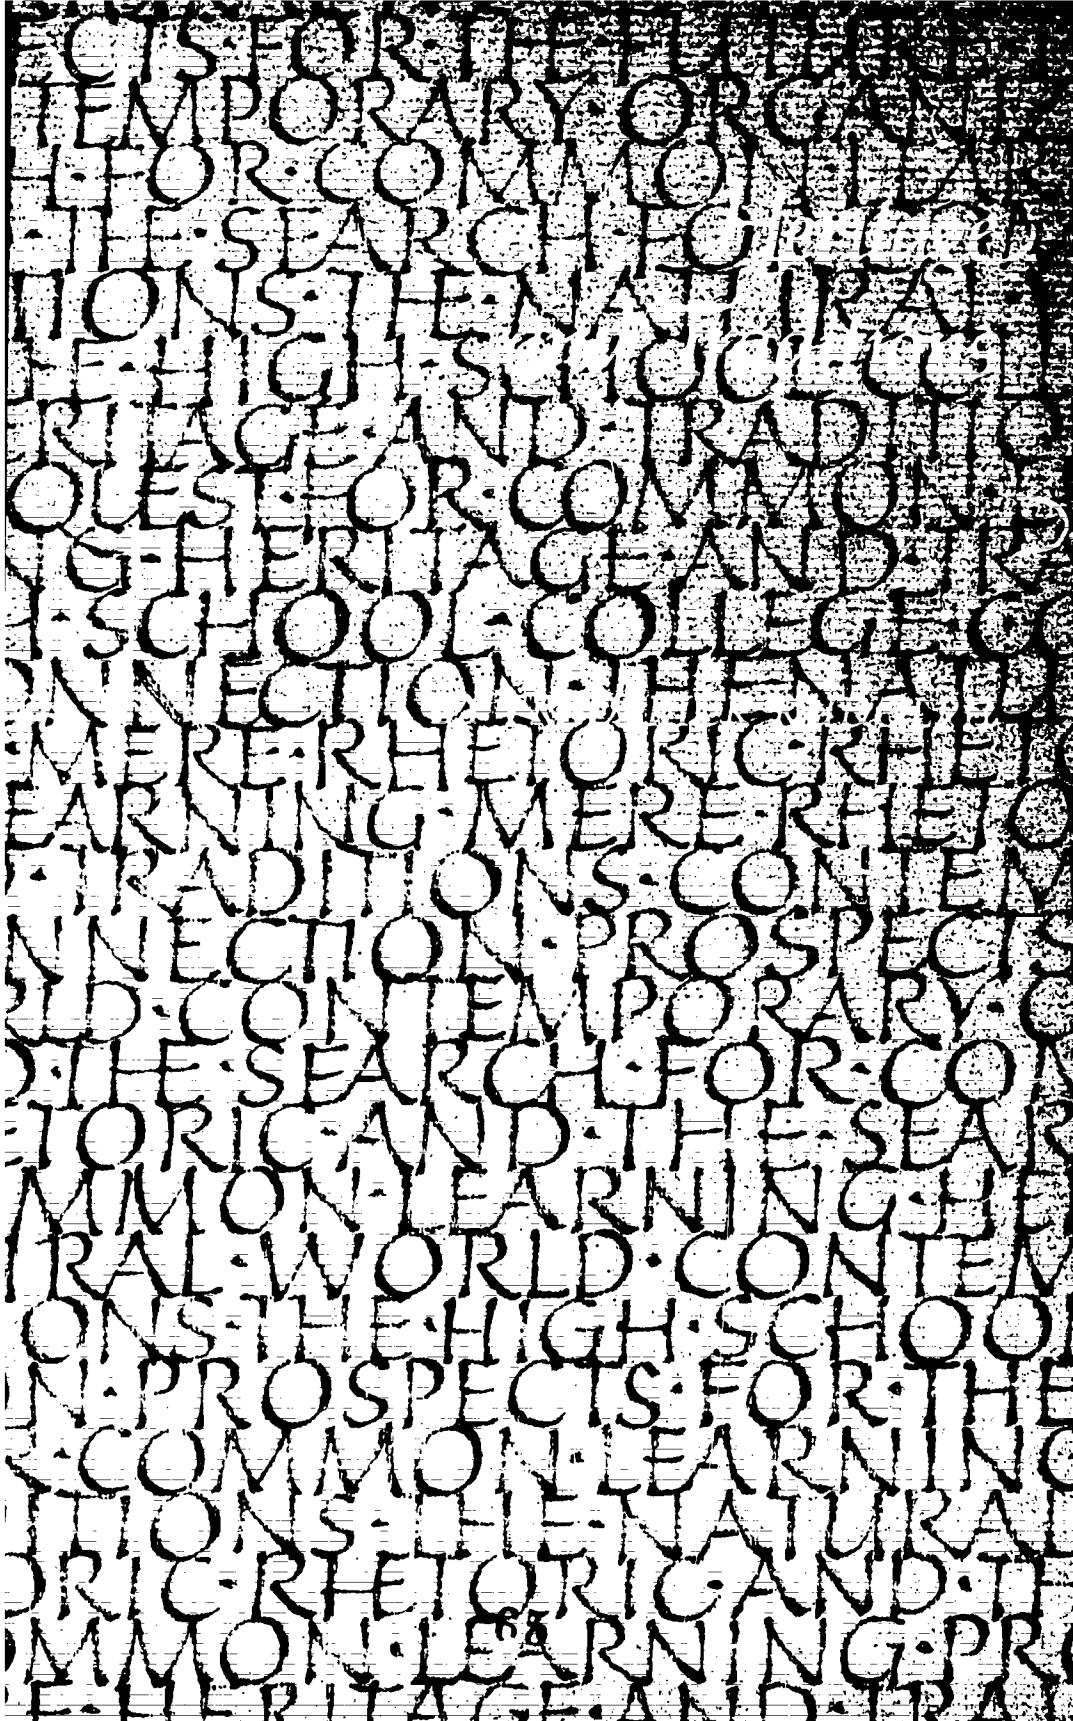 ECTS·FOR·THE·FUTURE·T
TEMPORARY·ORGANIZ
L·FOR·COMMON·LEAR
·THE·SEARCH·FO
TIONS·THE·NATURAL·
THE·HIGH·SCHOOL
ERITAGE·AND·TRADITIO
QUEST·FOR·COMMON·
NG·HERITAGE·AND·TR
H·SCHOOL·COLLEGE·CO
ONNECTION·THE·NATUR
·MERE·RHETORIC·RHETO
EARNING·MERE·RHETO
·TRADITIONS·CONTEM
NNECTION·PROSPECTS
RLD·CONTEMPORARY·O
D·THE·SEARCH·FOR·CO
ETORIC·AND·THE·SEAR
MMON·LEARNING·HE
RAL·WORLD·CONTEM
ONS·THE·HIGH·SCHOOL
N·PROSPECTS·FOR·THE
R·COMMON·LEARNING
ITIONS·THE·NATURAL
ORIC·RHETORIC·AND·TH
OMMON·LEARNING·PRO
63
E·HERITAGE·AND·TRAD